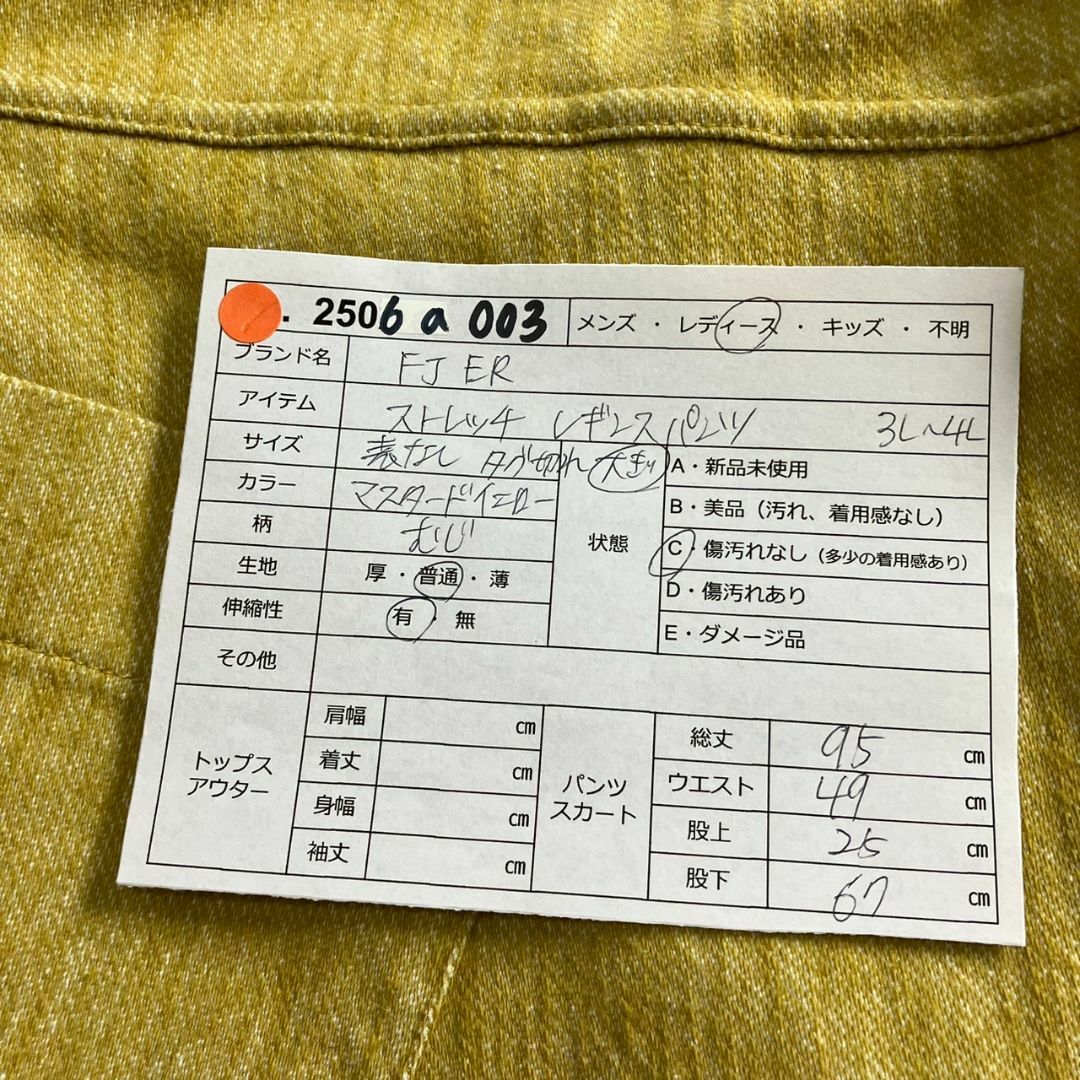 . 2506 a 003 メンズ ・ レディース ・ キッズ ・ 不明
ブランド名 FJ ER
アイテム ストレッチ レギンスパンツ 3L~4L
サイズ 表なし タグ切れ 大きめ
カラー マスタードイエロー
柄 むじ
生地 厚・普通・薄
伸縮性 有・無
その他
状態
A・新品未使用
B・美品（汚れ、着用感なし）
C・傷汚れなし（多少の着用感あり）
D・傷汚れあり
E・ダメージ品
トップス
アウター
肩幅 cm
着丈 cm
身幅 cm
袖丈 cm
パンツ
スカート
総丈 95 cm
ウエスト 49 cm
股上 25 cm
股下 67 cm